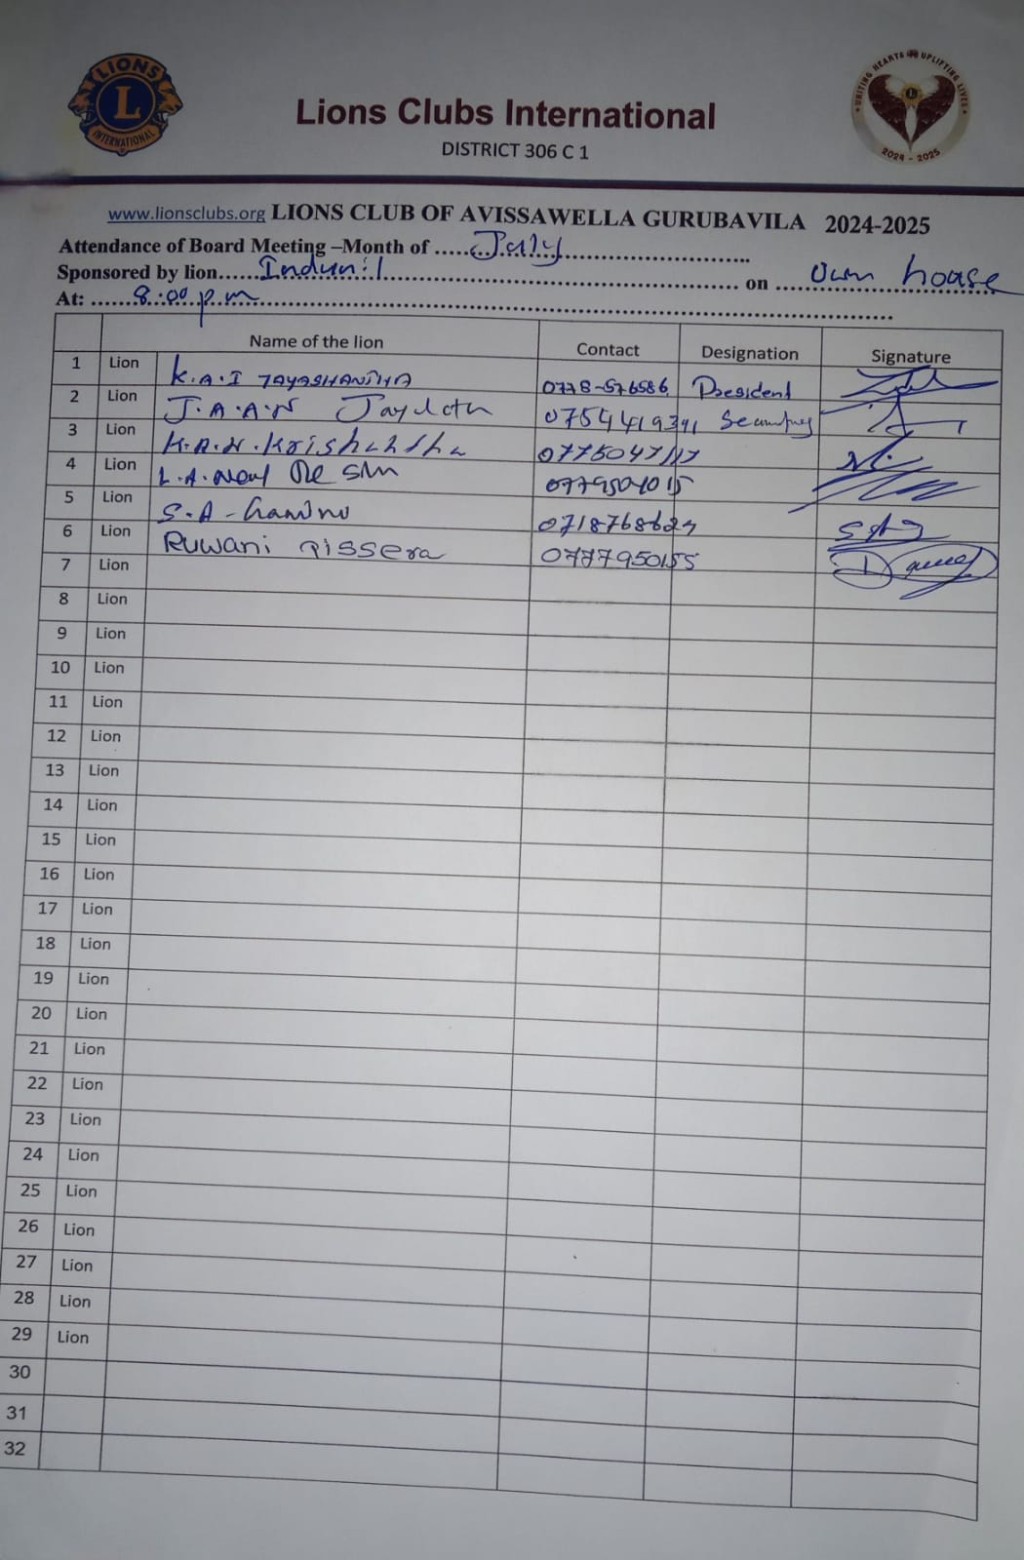 LIONS
L
INTERNATIONAL
Lions Clubs International
DISTRICT 306 C 1
UNITING HEARTS UPLIFTING LIVES
2024 - 2025
www.lionsclubs.org LIONS CLUB OF AVISSAWELLA GURUBAVILA 2024-2025
Attendance of Board Meeting –Month of ..... July
Sponsored by lion...... Indunil ...... on ...... Own house
At: ...... 8.00 p.m
Name of the lion Contact Designation Signature
1 Lion K.A.I JAYASHANTHA 0778-576586 President
2 Lion J.A.A.N 0754419391
3 Lion K.A.N. 0775047117
4 Lion L.A. De Silva 0779504015
5 Lion S.A. 0718768627
6 Lion Ruwani Pissera 0777950155
7 Lion
8 Lion
9 Lion
10 Lion
11 Lion
12 Lion
13 Lion
14 Lion
15 Lion
16 Lion
17 Lion
18 Lion
19 Lion
20 Lion
21 Lion
22 Lion
23 Lion
24 Lion
25 Lion
26 Lion
27 Lion
28 Lion
29 Lion
30
31
32